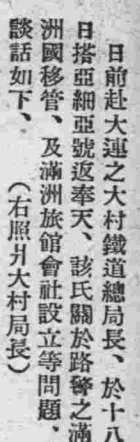 日前赴大連之大村鐵道總局長、於十八
日搭亞細亞號返奉天、該氏關於路警之滿
洲國移管、及滿洲旅館會社設立等問題、
談話如下、　（右照爿大村局長）